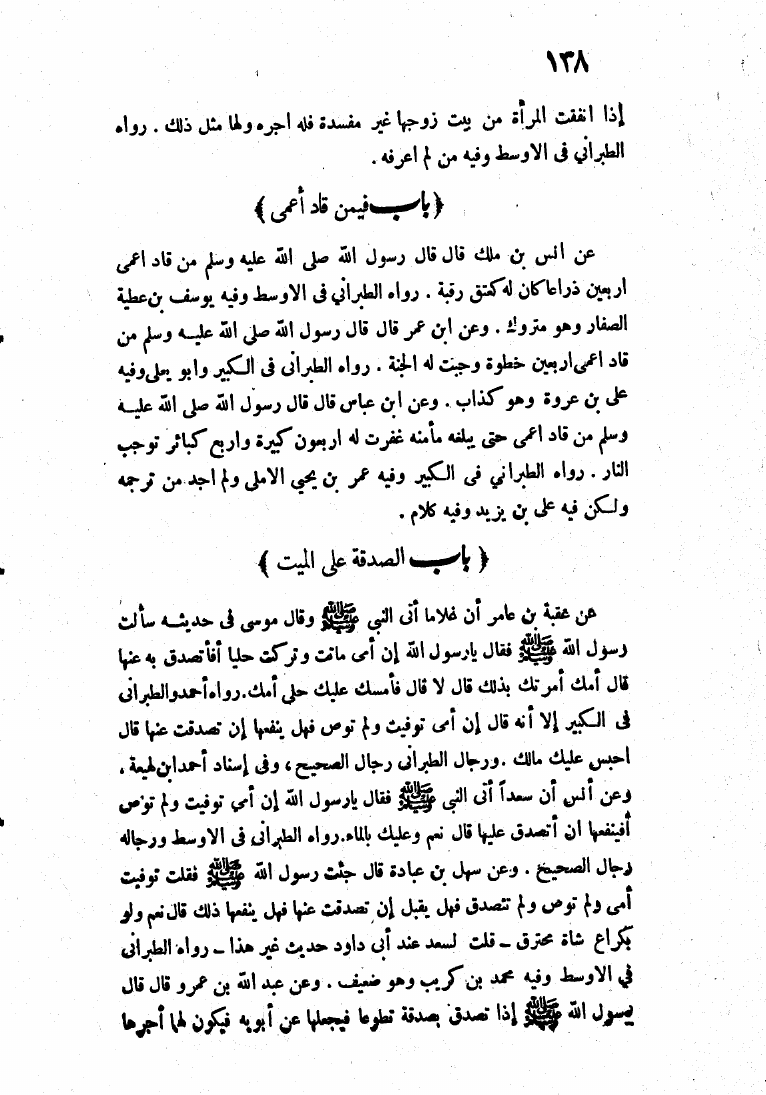 ١٣٨
إذا انفقت المرأة من بيت زوجها غير مفسدة فله اجره ولها مثل ذلك . رواه
الطبراني فى الاوسط وفيه من لم اعرفه .
﴿ باب فيمن قاد أعمى ﴾
عن انس بن ملك قال قال رسول الله صلى الله عليه وسلم من قاد اعمى
اربعين ذراعا كان له كعتق رقبة . رواه الطبراني فى الاوسط وفيه يوسف بن عطية
الصفار وهو متروك . وعن ابن عمر قال قال رسول الله صلى الله عليه وسلم من
قاد اعمى اربعين خطوة وجبت له الجنة . رواه الطبرانى فى الكبير وابو يعلى وفيه
على بن عروة وهو كذاب . وعن ابن عباس قال قال رسول الله صلى الله عليه
وسلم من قاد اعمى حتى يبلغه مأمنه غفرت له اربعون كبيرة واربع كبائر توجب
النار . رواه الطبراني فى الكبير وفيه عمر بن يحيي الاملى ولم اجد من ترجمه
ولكن فيه على بن يزيد وفيه كلام .
﴿ باب الصدقة على الميت ﴾
عن عقبة بن عامر أن غلاما أتى النبي ﷺ وقال موسى فى حديثه سألت
رسول الله ﷺ فقال يارسول الله إن أمى ماتت وتركت حليا أفأتصدق به عنها
قال أمك أمرتك بذلك قال لا قال فأمسك عليك حلي أمك.رواه أحمد والطبرانى
فى الكبير إلا أنه قال إن أمى توفيت ولم توص فهل ينفعها إن تصدقت عنها قال
احبس عليك مالك .ورجال الطبرانى رجال الصحيح، وفى إسناد أحمد ابن لهيعة .
وعن أنس أن سعداً أتى النبى ﷺ فقال يارسول الله إن أمي توفيت ولم توص
أفينفعها ان أتصدق عليها قال نعم وعليك بالماء.رواه الطبرانى فى الاوسط ورجاله
رجال الصحيح . وعن سهل بن عبادة قال جئت رسول الله ﷺ فقلت توفيت
أمى ولم توص ولم تتصدق فهل يقبل إن تصدقت عنها فهل ينفعها ذلك قال نعم ولو
بكراع شاة محترق ــ قلت لسعد عند أبى داود حديث غير هذا ــ رواه الطبرانى
في الاوسط وفيه محمد بن كريب وهو ضعيف . وعن عبد الله بن عمرو قال قال
رسول الله ﷺ إذا تصدق بصدقة تطوعا فيجعلها عن أبويه فيكون لهما أجرها